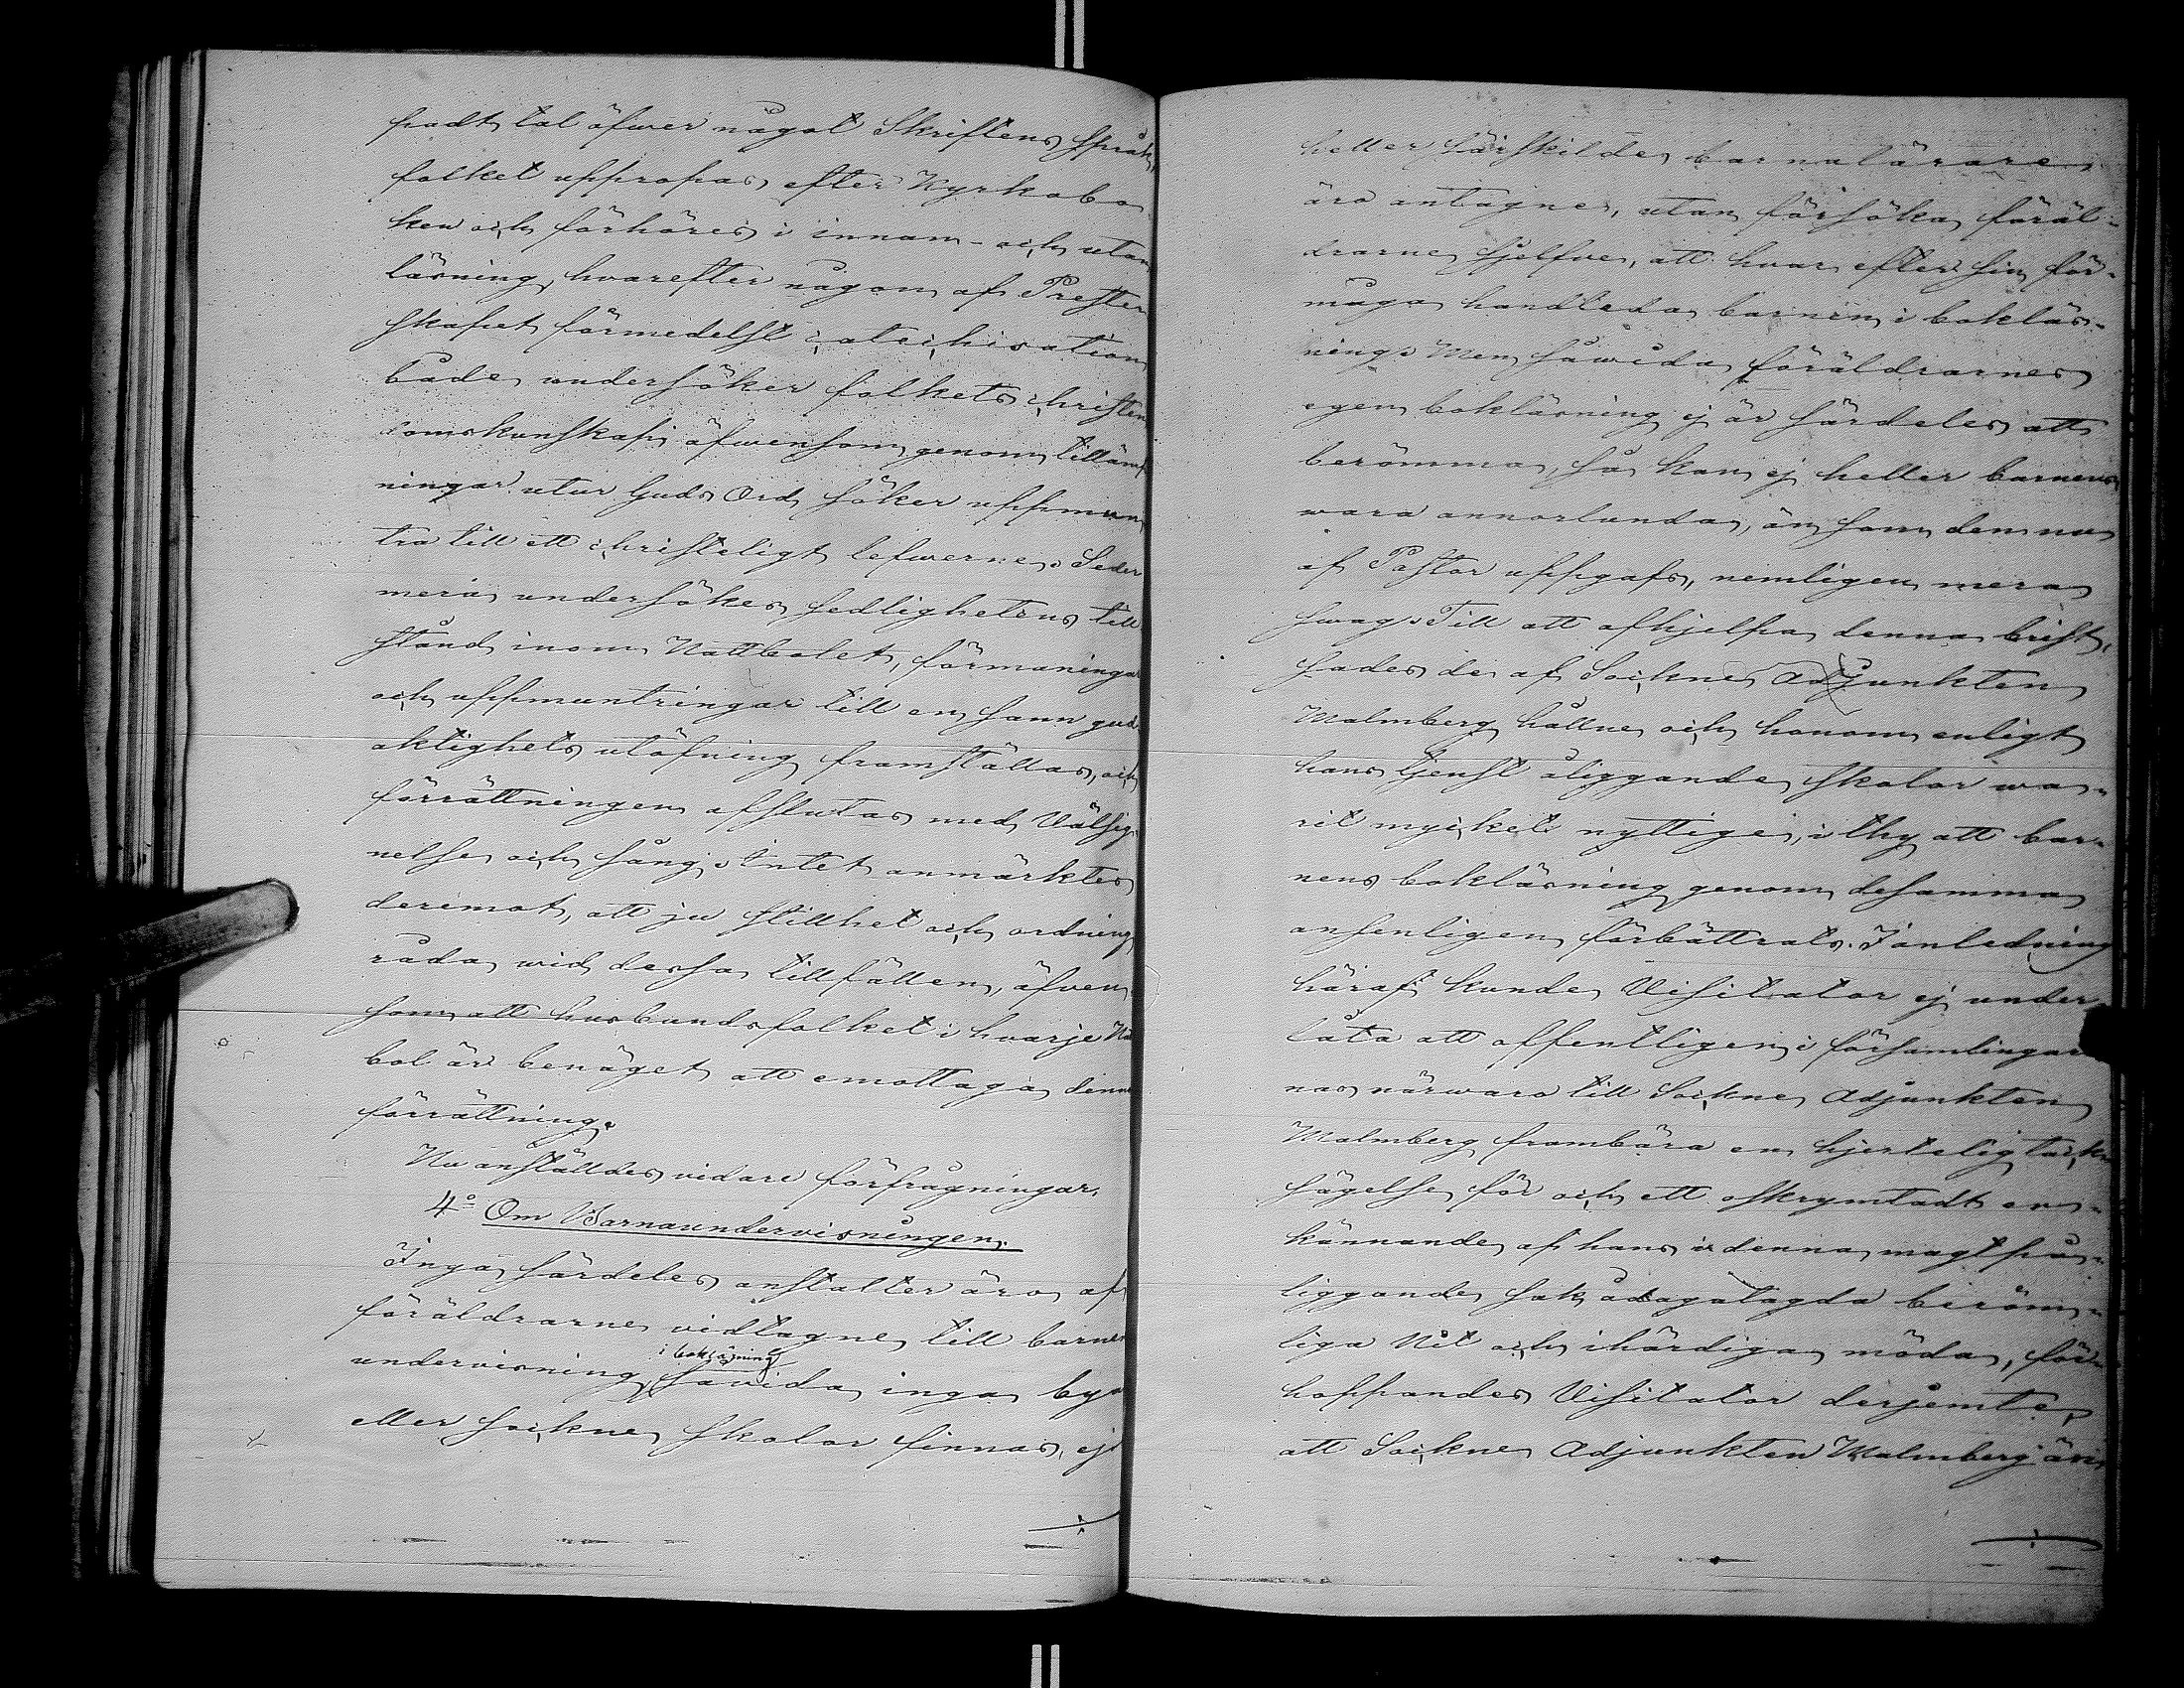 padt tal öfwer något Skriftens språk,
folket uppropas efter Kyrkobo
ken och förhöres i innan- och utan
läsning, hvarefter någon af Prester
skapet förmedelst catechisation
både undersöker folkets christen
domskunskap äfwensom genom tillämp
ningar utur Guds Ord söker uppmun
tra till ett christeligt lefwerne. Seder
mera undersökes sedlighetens till
stånd inom Nattbolet, förmaningar
och uppmuntringar till en sann gud
aktighets utöfning framställas, och
förrättningen afslutas med Välsig
nelse och sång. Intet anmärktes
deremot, att ju stillhet och ordning
råda wid dessa tillfällen, äfven
som att husbondsfolket i hvarje Na
bol är benäget att emottaga denna
förrättning.
Nu anställdes vidare förfrågningar.
4o Om Barnaundervisningen.
Inga särdeles anstalter äro af
föräldrarne vidtagne till barnens
i bokläsning
undervisning, såvida inga bya
eller sockne skolor finnas, ej
heller särskilde barnalärare
äro antagne, utan försöka föräl-
drarne sjelfve, att hvar efter sin för-
måga handleda barnen i bokläs-
ning. Men såwida föräldrarnes
egen bokläsning ej är särdeles att
berömma, så kan ej heller barnens
wara annorlunda, än som den nu
af Pastor uppgafs, nemligen mera
swag. Till att afhjelpa denna brist,
sades de af Sockne Adjunkten
Malmberg hållne och honom enligt
hans tjenst åliggande skolor wa-
rit mycket nyttige, i thy att bar-
nens bokläsning genom desamma
ansenligen förbättrats. I anledning
häraf kunde Visitator ej under
låta att offentligen i församlingar
nas närwaro till Sockne Adjunkten
Malmberg frambära en hjertelig tack
sägelse för och ett oskrymtadt er-
kännande af hans i denna magtpå-
liggande sak ådagalagda beröm-
liga Nit och ihärdiga möda, för
hoppandes Visitator derjemte,
att Sockne Adjunkten Malmberg äfv